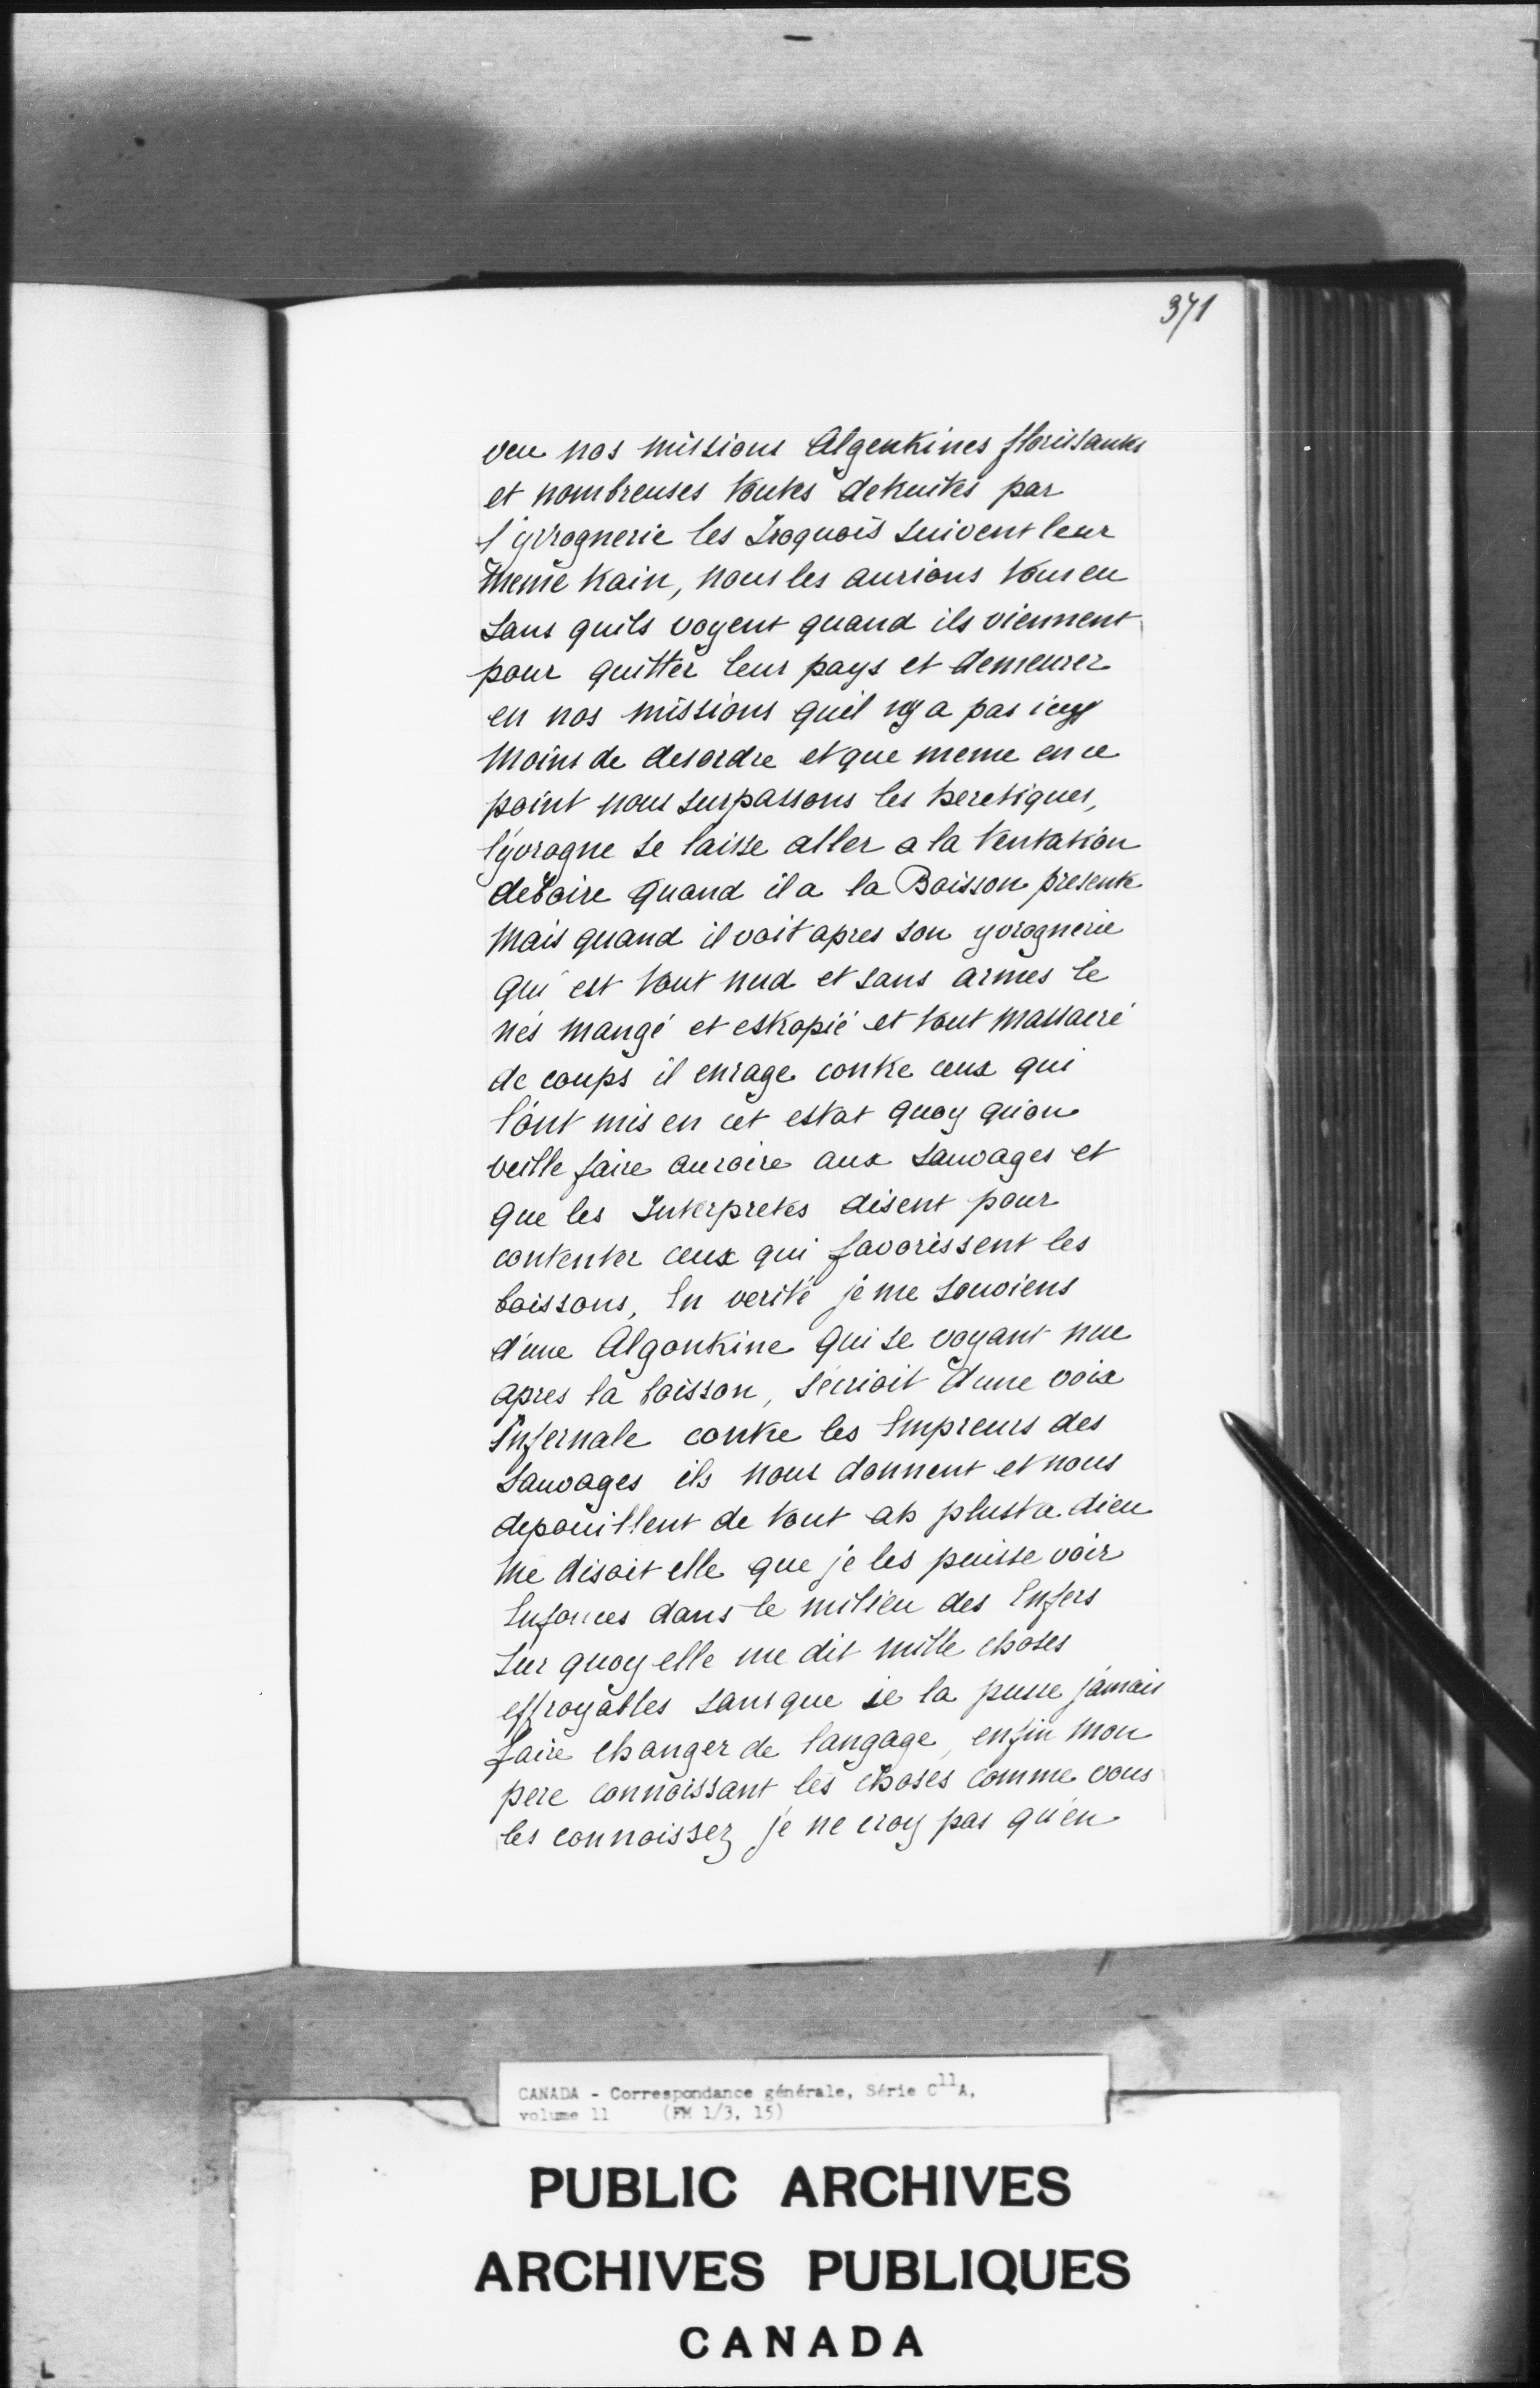 371
veu nos missions Algonkines florissantes
et nombreuses toutes detruites par
l'yvrognerie les Iroquois suivent leur
meme train, nous les aurions tous eu
sans quils voyent quand ils viennent
pour quitter leur pays et demeurer
en nos missions quil ny a pas icy
moins de desordre et que meme en ce
point nous surpassons les heretiques,
l'yvrogne se laisse aller a la tentation
deboire quand il a la Boisson presente
mais quand il voit apres son yvrognerie
qui est tout nud et sans armes le
nés mangé et estropié et tout massacré
de coups il enrage contre ceux qui
l'ont mis en cet estat quoy qu'on
veille faire acroire aux sauvages et
que les Interpretes disent pour
contenter ceux qui favorissent les
boissons, En verité je me souviens
d'une Algonkine qui se voyant nue
apres la boisson, s'ecrioit d'une voix
Infernale contre les Empreurs des
sauvages ils nous donnent et nous
depouillent de tout ah plust a dieu
me disoit elle que je les puisse voir
Enfoncés dans le milieu des Enfers
sur quoy elle me dit mille choses
effroyables sans que je la pusse jamais
faire changer de langage, enfin mon
pere connoissant les choses comme vous
les connoissez je ne croy pas qu'en
CANADA - Correspondance générale, Série C11A,
volume 11 (FM 1/3, 15)
PUBLIC ARCHIVES
ARCHIVES PUBLIQUES
CANADA